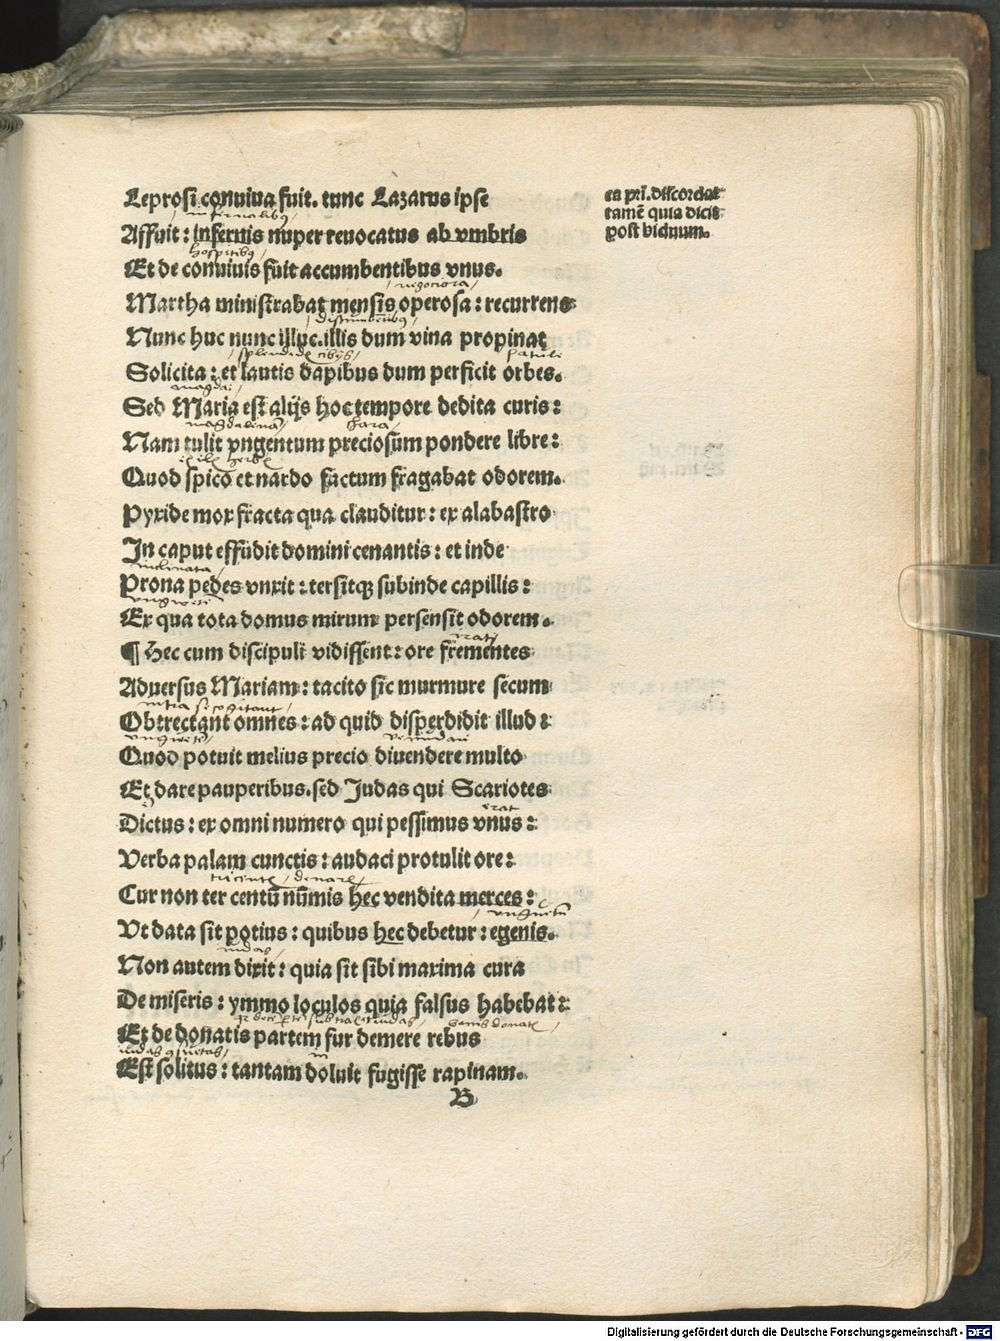 Leprosi conuiua fuit. tunc Lazarus ipse
infernalibus
Affuit: infernis nuper reuocatus ab vmbris
hospitibus
Et de conuiuis fuit accumbentibus vnus.
Martha ministrabat mensis operosa: recurrens
Nunc huc nunc illuc. illis dum vina propinat
splendidis cibis
Solicita: et lautis dapibus dum perficit orbes.
Sed Maria est alijs hoc tempore dedita curis:
magdalena chara
Nam tulit vngentum preciosum pondere libre:
Quod spico et nardo factum fragabat odorem.
Pyxide mox fracta qua clauditur: ex alabastro
In caput effudit domini cenantis: et inde
inclinata
Prona pedes vnxit: tersitqꝫ subinde capillis:
Ex qua tota domus mirum persensit odorem.
irati
¶ Hec cum discipuli vidissent: ore frementes
Aduersus Mariam: tacito sic murmure secum
Obtrectant omnes: ad quid disperdidit illud:
Quod potuit melius precio diuendere multo
Et dare pauperibus. sed Judas qui Scariotes
erat
Dictus: ex omni numero qui pessimus vnus:
Verba palam cunctis: audaci protulit ore:
Cur non ter centū nūmis hec vendita merces:
Vt data sit potius: quibus hec debetur: egenis.
iudas
Non autem dixit: quia sit sibi maxima cura
De miseris: ymmo loculos quia falsus habebat:
Et de donatis partem fur demere rebus
Est solitus: tantam doluit fugisse rapinam.
B
ea pri. discordat
tamē quia dicit
post biduum.
Digitalisierung gefördert durch die Deutsche Forschungsgemeinschaft - DFG